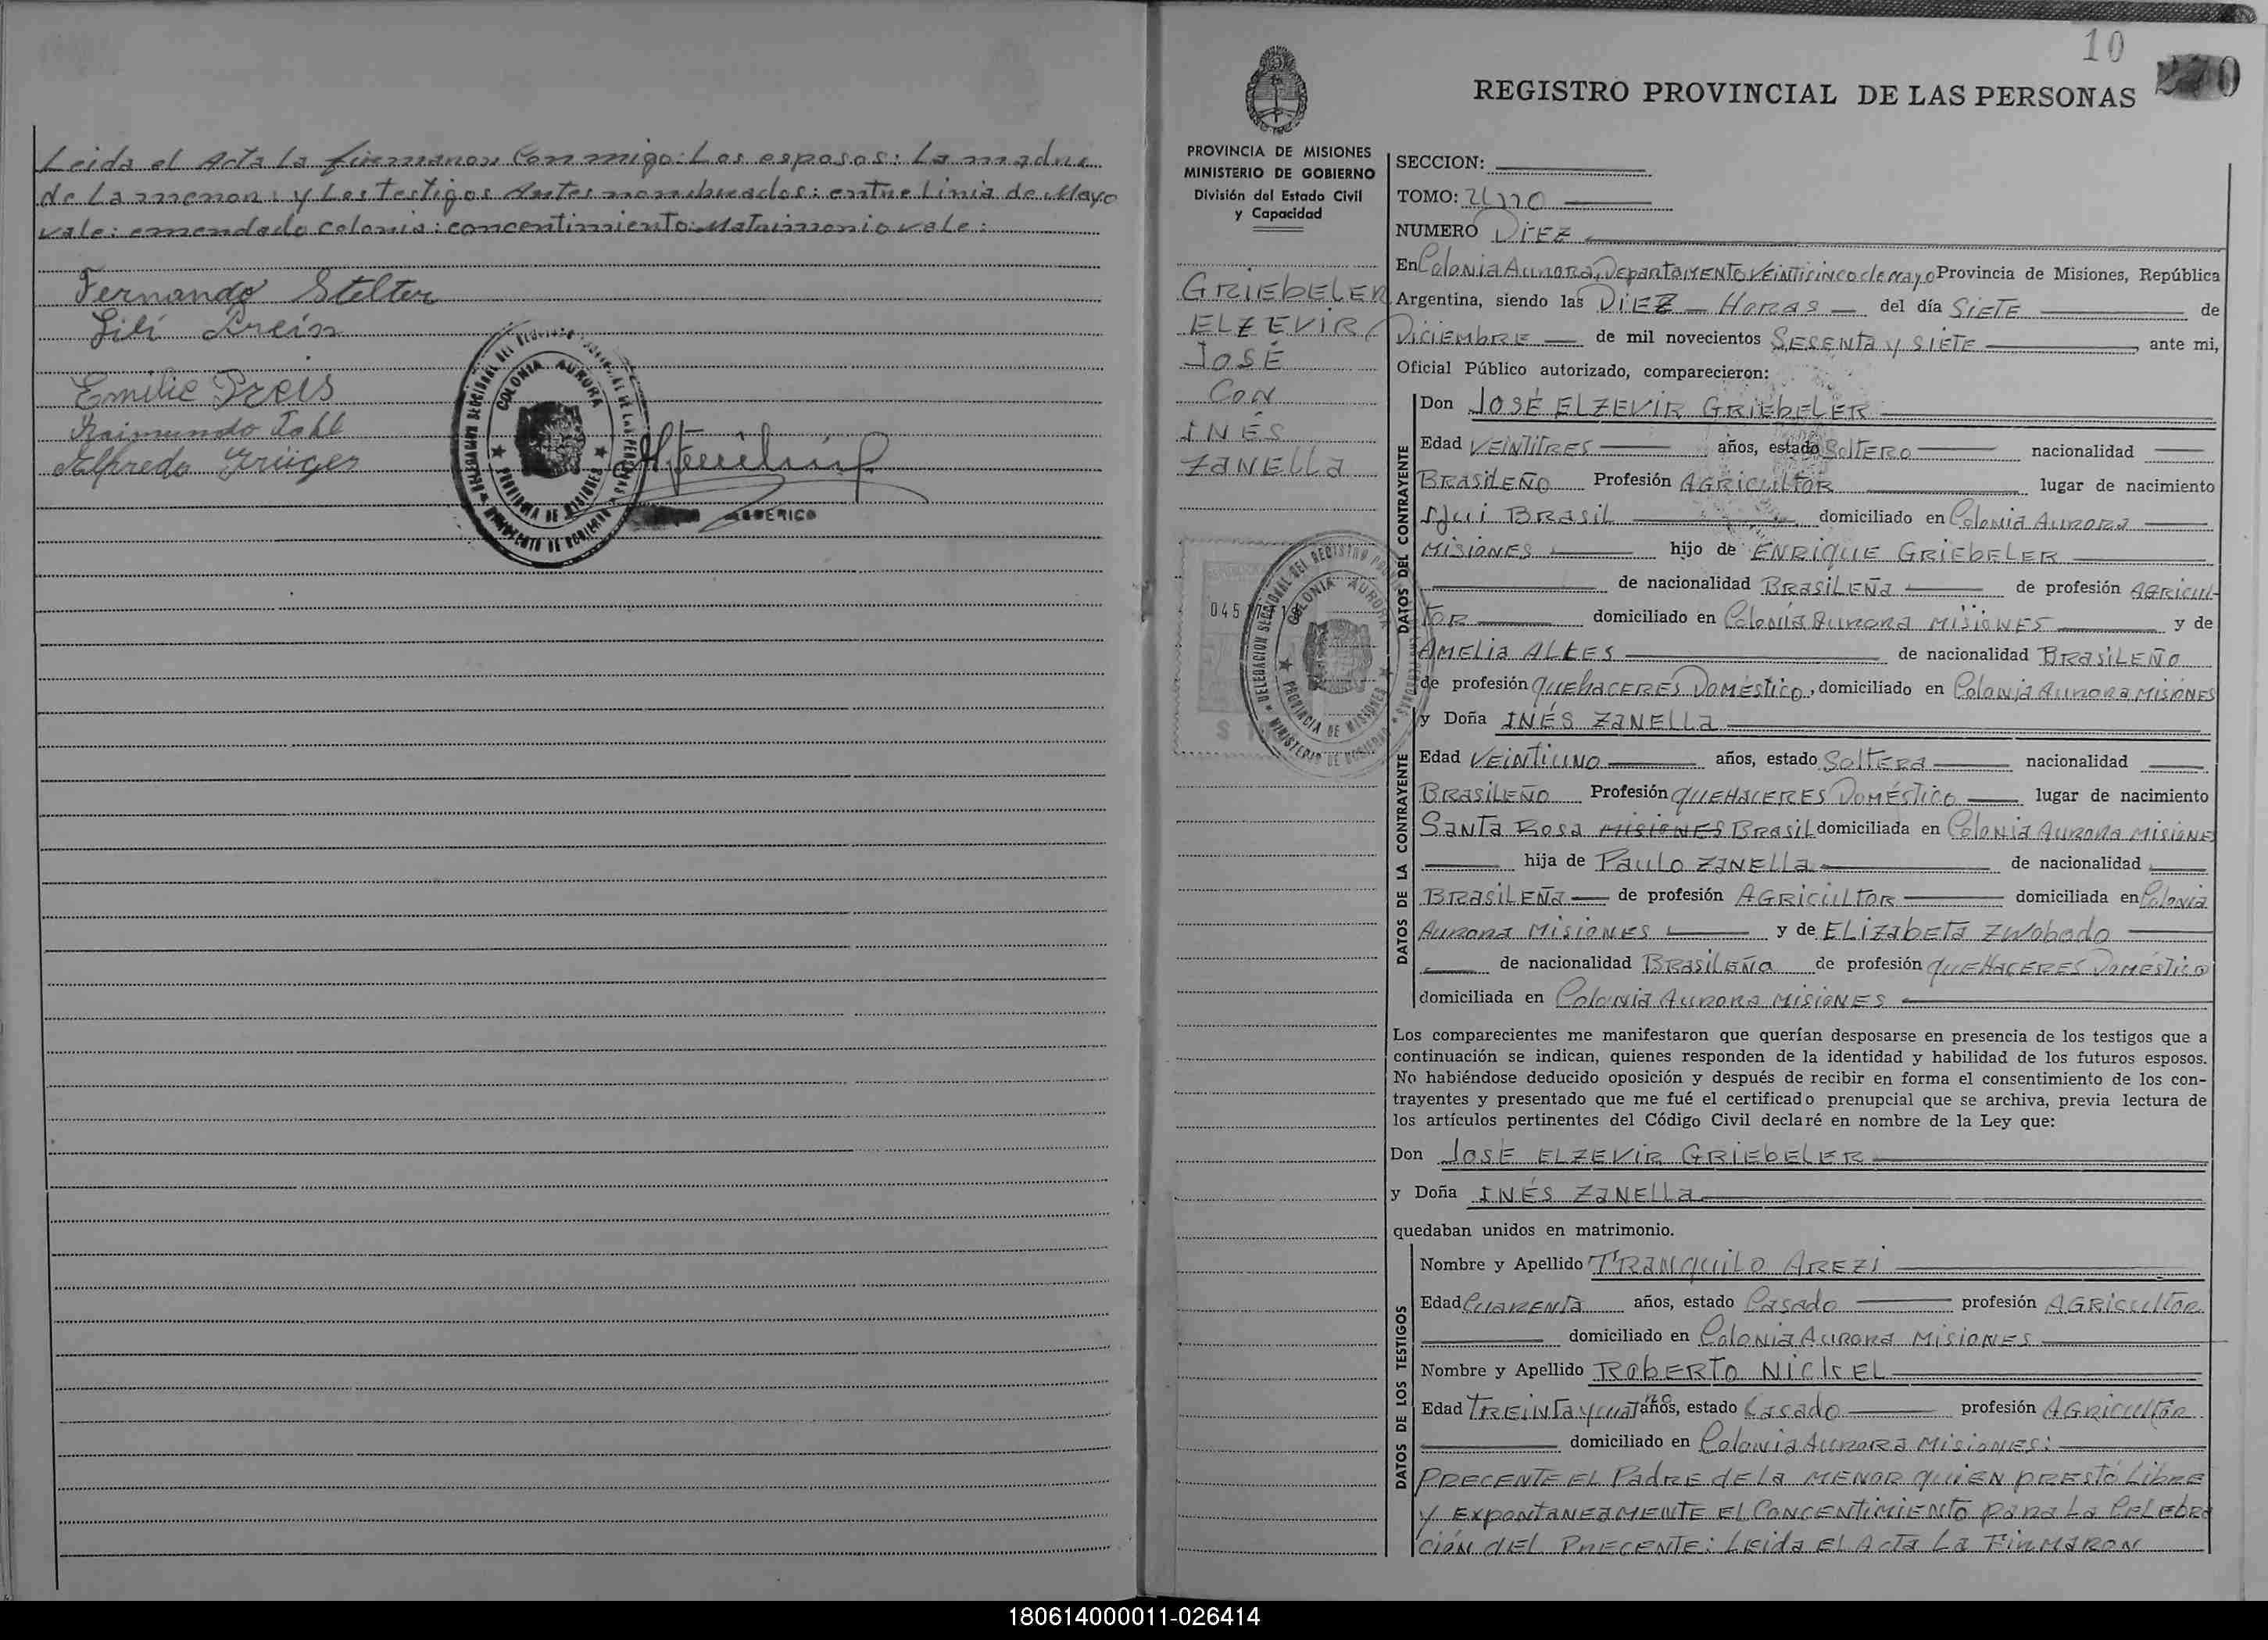 Leida el Acta la firmaron Conmigo: Los esposos: La madre
de La menor: y Los testigos Antes nombrados: entre Linia de Mayo
vale: emendado colonia: concentimiento: Matrimonio vale:
Fernando Stelter
Lili Preis
Emilie Preis
Raimundo Tohl
Alfredo Krüger
COLONIA AURORA
PROVINCIA DE MISIONES
10
270
REGISTRO PROVINCIAL DE LAS PERSONAS
PROVINCIA DE MISIONES
MINISTERIO DE GOBIERNO
División del Estado Civil
y Capacidad
GRIEbELER
ELZEVIR
JOSÉ
CON
INÉS
ZANELLA
045
COLONIA AURORA
PROVINCIA DE MISIONES
SECCION:
TOMO: UNO
NUMERO DIEZ
En Colonia Aurora, Departamento Veinticinco de Mayo Provincia de Misiones, República
Argentina, siendo las DIEZ HORAS del día SIETE de
Diciembre de mil novecientos SESENTA y SIETE, ante mi,
Oficial Público autorizado, comparecieron:
DATOS DEL CONTRAYENTE
Don JOSÉ ELZEVIR GRIEbELER
Edad VEINTITRES años, estado SOLTERO nacionalidad
BRASILEÑO Profesión AGRICULTOR lugar de nacimiento
IJUI BRASIL domiciliado en Colonia Aurora
MISIONES hijo de ENRIQUE GRIEbELER
de nacionalidad BRASILEÑA de profesión AGRICUL-
TOR domiciliado en Colonia Aurora MISIONES y de
AMELIA ALTES de nacionalidad BRASILEÑO
de profesión QUEhACERES DOMÉSTICO, domiciliado en Colonia Aurora MISIONES
DATOS DE LA CONTRAYENTE
y Doña INÉS ZANELLA
Edad VEINTIUNO años, estado SOLTERA nacionalidad
BRASILEÑO Profesión QUEHACERES DOMÉSTICO lugar de nacimiento
SANTA ROSA MISIONES BRASIL domiciliada en Colonia Aurora MISIONE
hija de PAULO ZANELLA de nacionalidad
BRASILEÑA de profesión AGRICULTOR domiciliada en Colonia
Aurora MISIONES y de ELIZABETA ZWObodo
de nacionalidad BRASILEÑA de profesión QUEHACERES DOMÉSTICO
domiciliada en Colonia Aurora MISIONES
Los comparecientes me manifestaron que querían desposarse en presencia de los testigos que a
continuación se indican, quienes responden de la identidad y habilidad de los futuros esposos.
No habiéndose deducido oposición y después de recibir en forma el consentimiento de los con-
trayentes y presentado que me fué el certificado prenupcial que se archiva, previa lectura de
los artículos pertinentes del Código Civil declaré en nombre de la Ley que:
Don JOSÉ ELZEVIR GRIEbELER
y Doña INÉS ZANELLA
quedaban unidos en matrimonio.
DATOS DE LOS TESTIGOS
Nombre y Apellido TRANQUILO AREZI
Edad CUARENTA años, estado Casado profesión AGRICULTOR
domiciliado en Colonia Aurora MISIONES
Nombre y Apellido RObERTO NICKEL
Edad TREINTA y CUATRO años, estado Casado profesión AGRICULTOR
domiciliado en Colonia Aurora MISIONES:
PRECENTE EL PADRE dE LA MENOR QUIEN PRESTÓ LIBRE
Y EXPONTANEAMENTE EL CONCENTIMIENTO PARA LA CELEBRA
CIÓN dEL PRECENTE: LEIdA EL ACTA LA FIRMARON
180614000011-026414